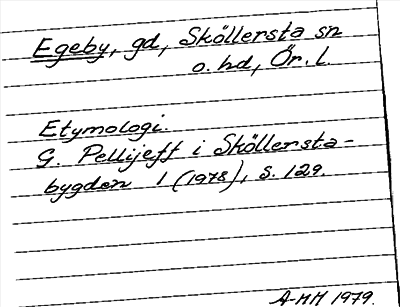 Egeby, gd, Sköllersta sn
o. hd, Ör. l.
Etymologi.
G. Pellijeff i Sköllersta-
bygden 1 (1978), s. 129.
A-MH 1979.